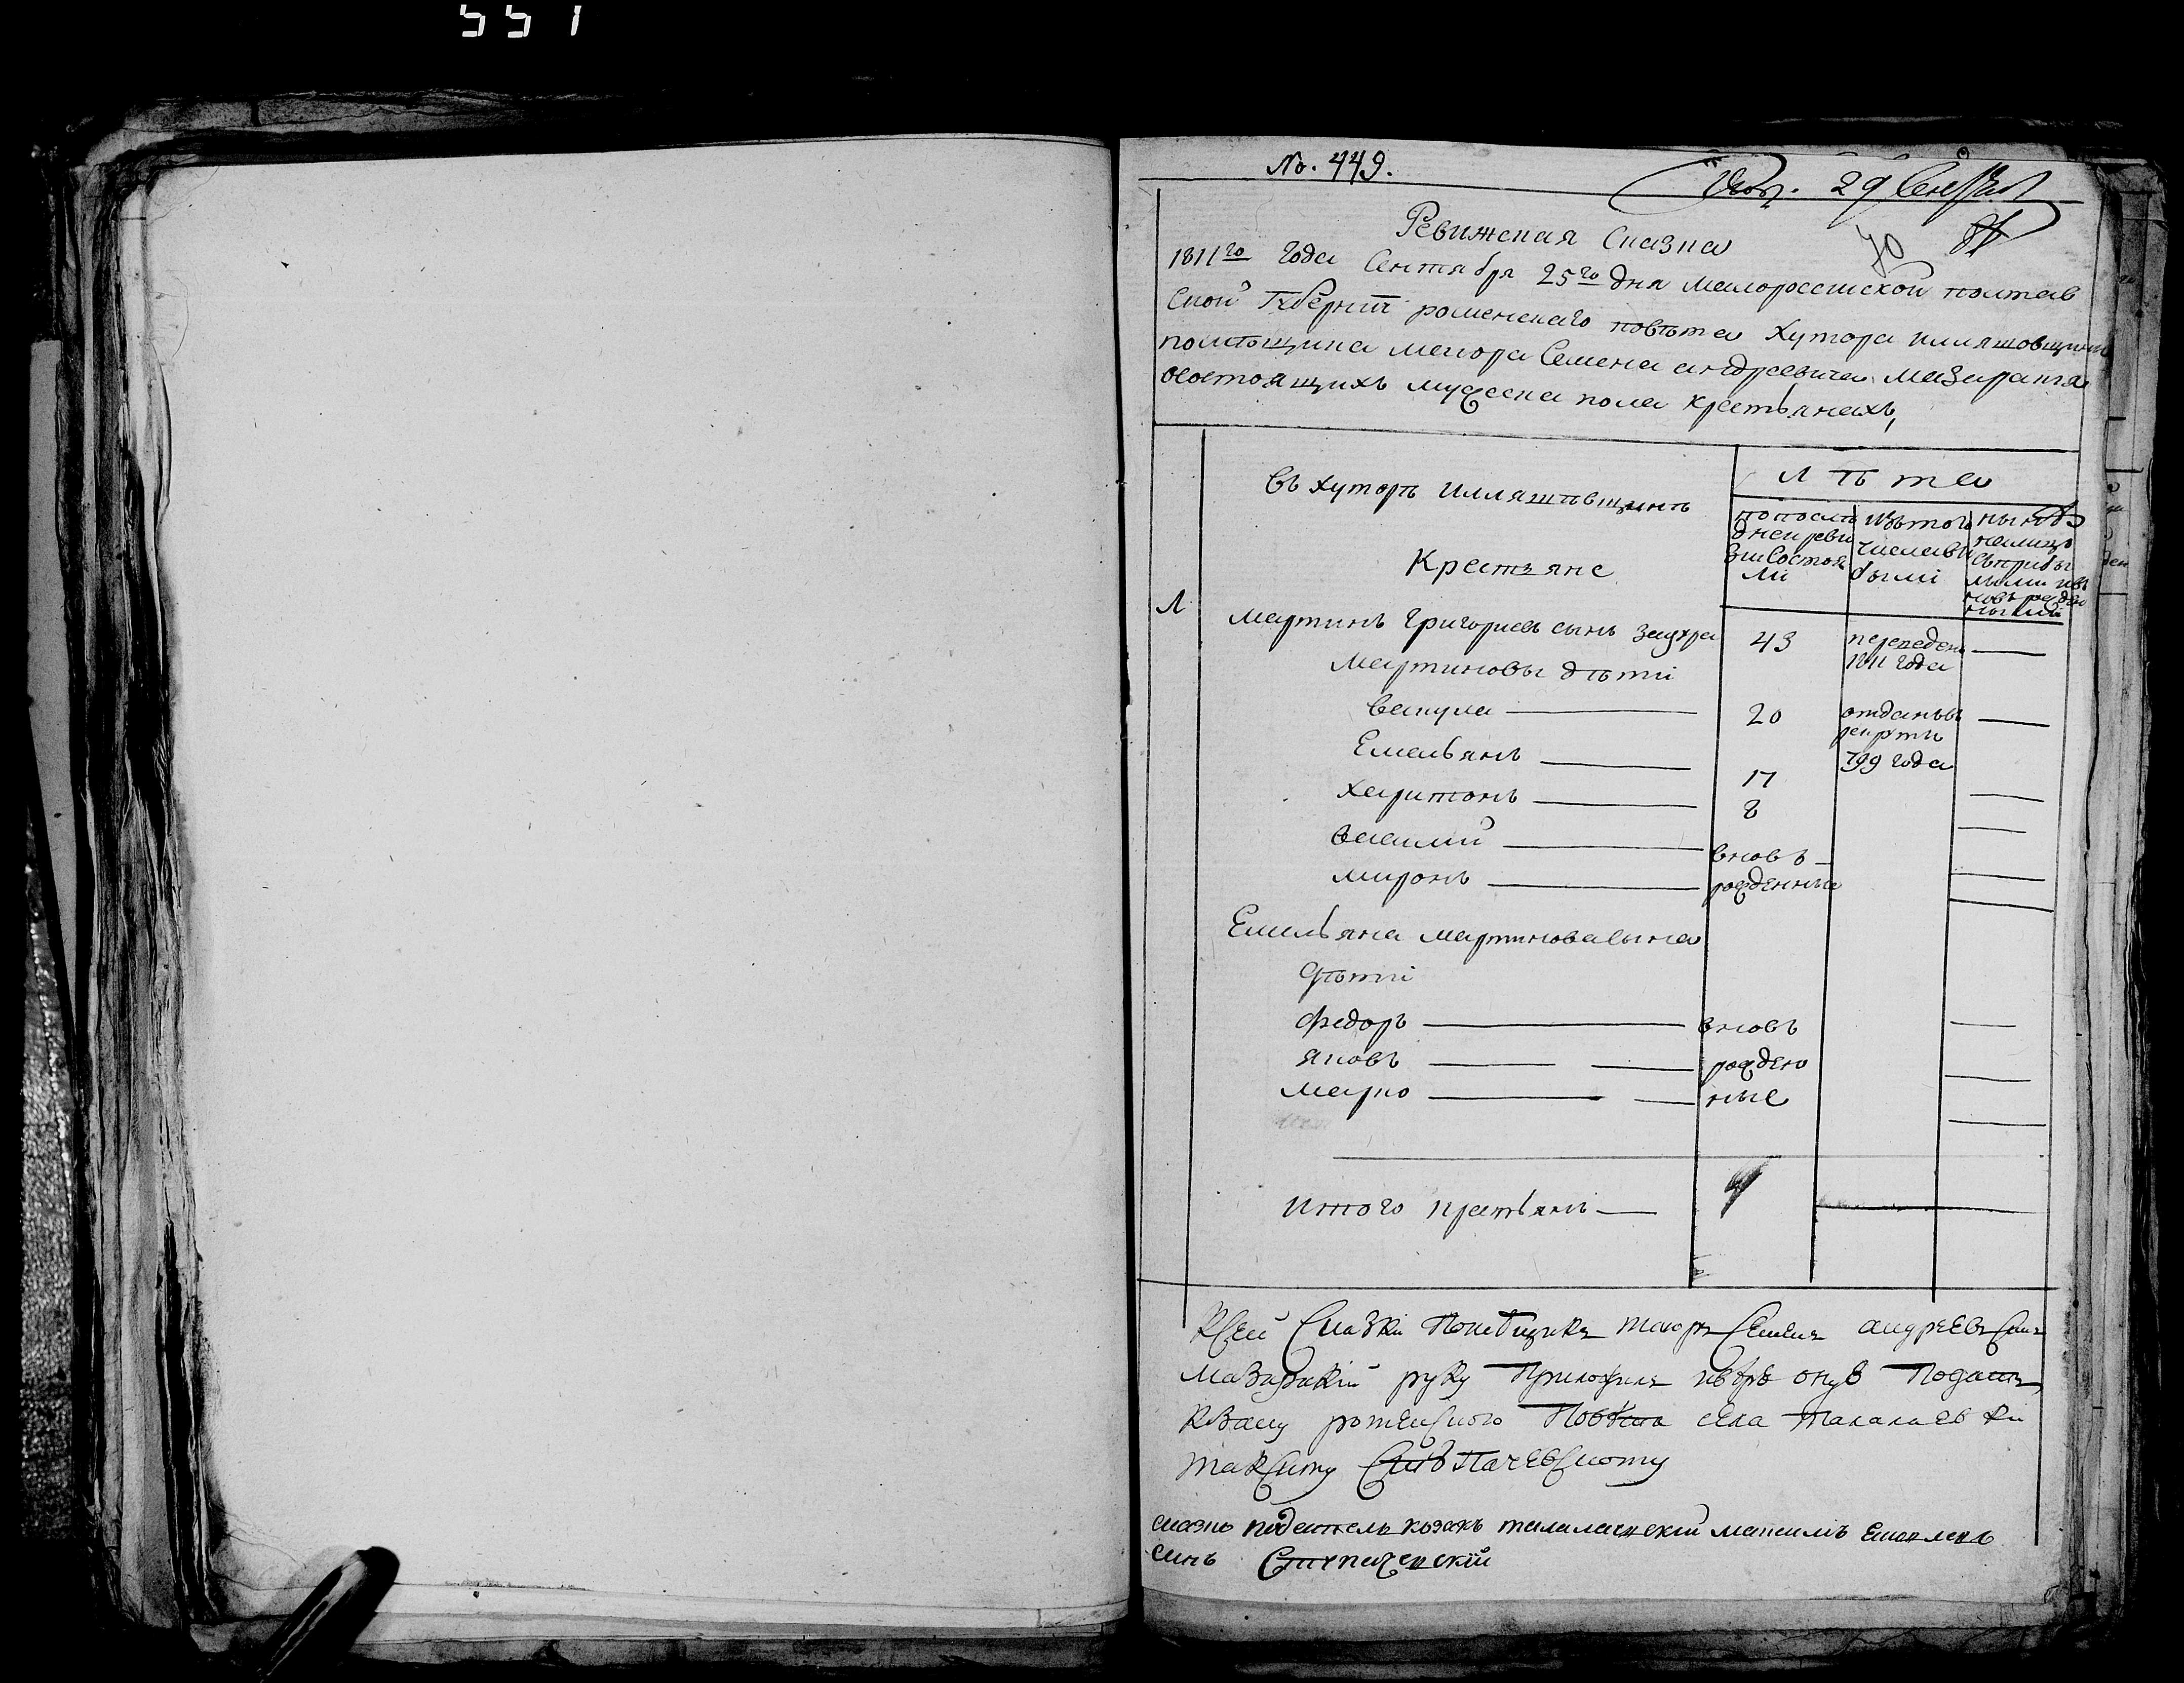 551
No. 449.
29
Ревижская Сказка
70
1811го года Сентября 25го дня малороссиской полтав
ской Губернии роменскаго повѣта хутора илляшовщини
помѣщика маиора Семена андреевича Мазаракия
осостоящихъ мужеска пола крестьянахъ,
въ хуторѣ илляшевщинѣ
Лѣта
Крестьяне
попослѣ
дней реви
зии состоя
ли
изътого
числа вы
были
нынѣ
налицо
съприбы
лыми ивъ
новь рожде
ными
Л
мартинъ григориевъ сынъ захра
43
переведенъ
1811 года
Мартиновы дѣти
вакула
20
отданъвъ
рекруты
799 года
Емельянъ
17
харитонъ
8
василий
вновь
миронъ
рожденные
Емельяна мартинова сына
дѣти
федоръ
вновъ
яковъ
рожден
марко
ные
итого крестьянъ
4
Ксей Сказки Помѣщикъ маюръ Семенъ андреевъ Синъ
Мазаракій руку Приложилъ ивѣрѣ онуѣ Подать
Козаку роменского Повѣта села талалаевки
максиму Слѣпачевскому
сказко податель козакъ талалаевский максимъ
синъ Слѣпачевский